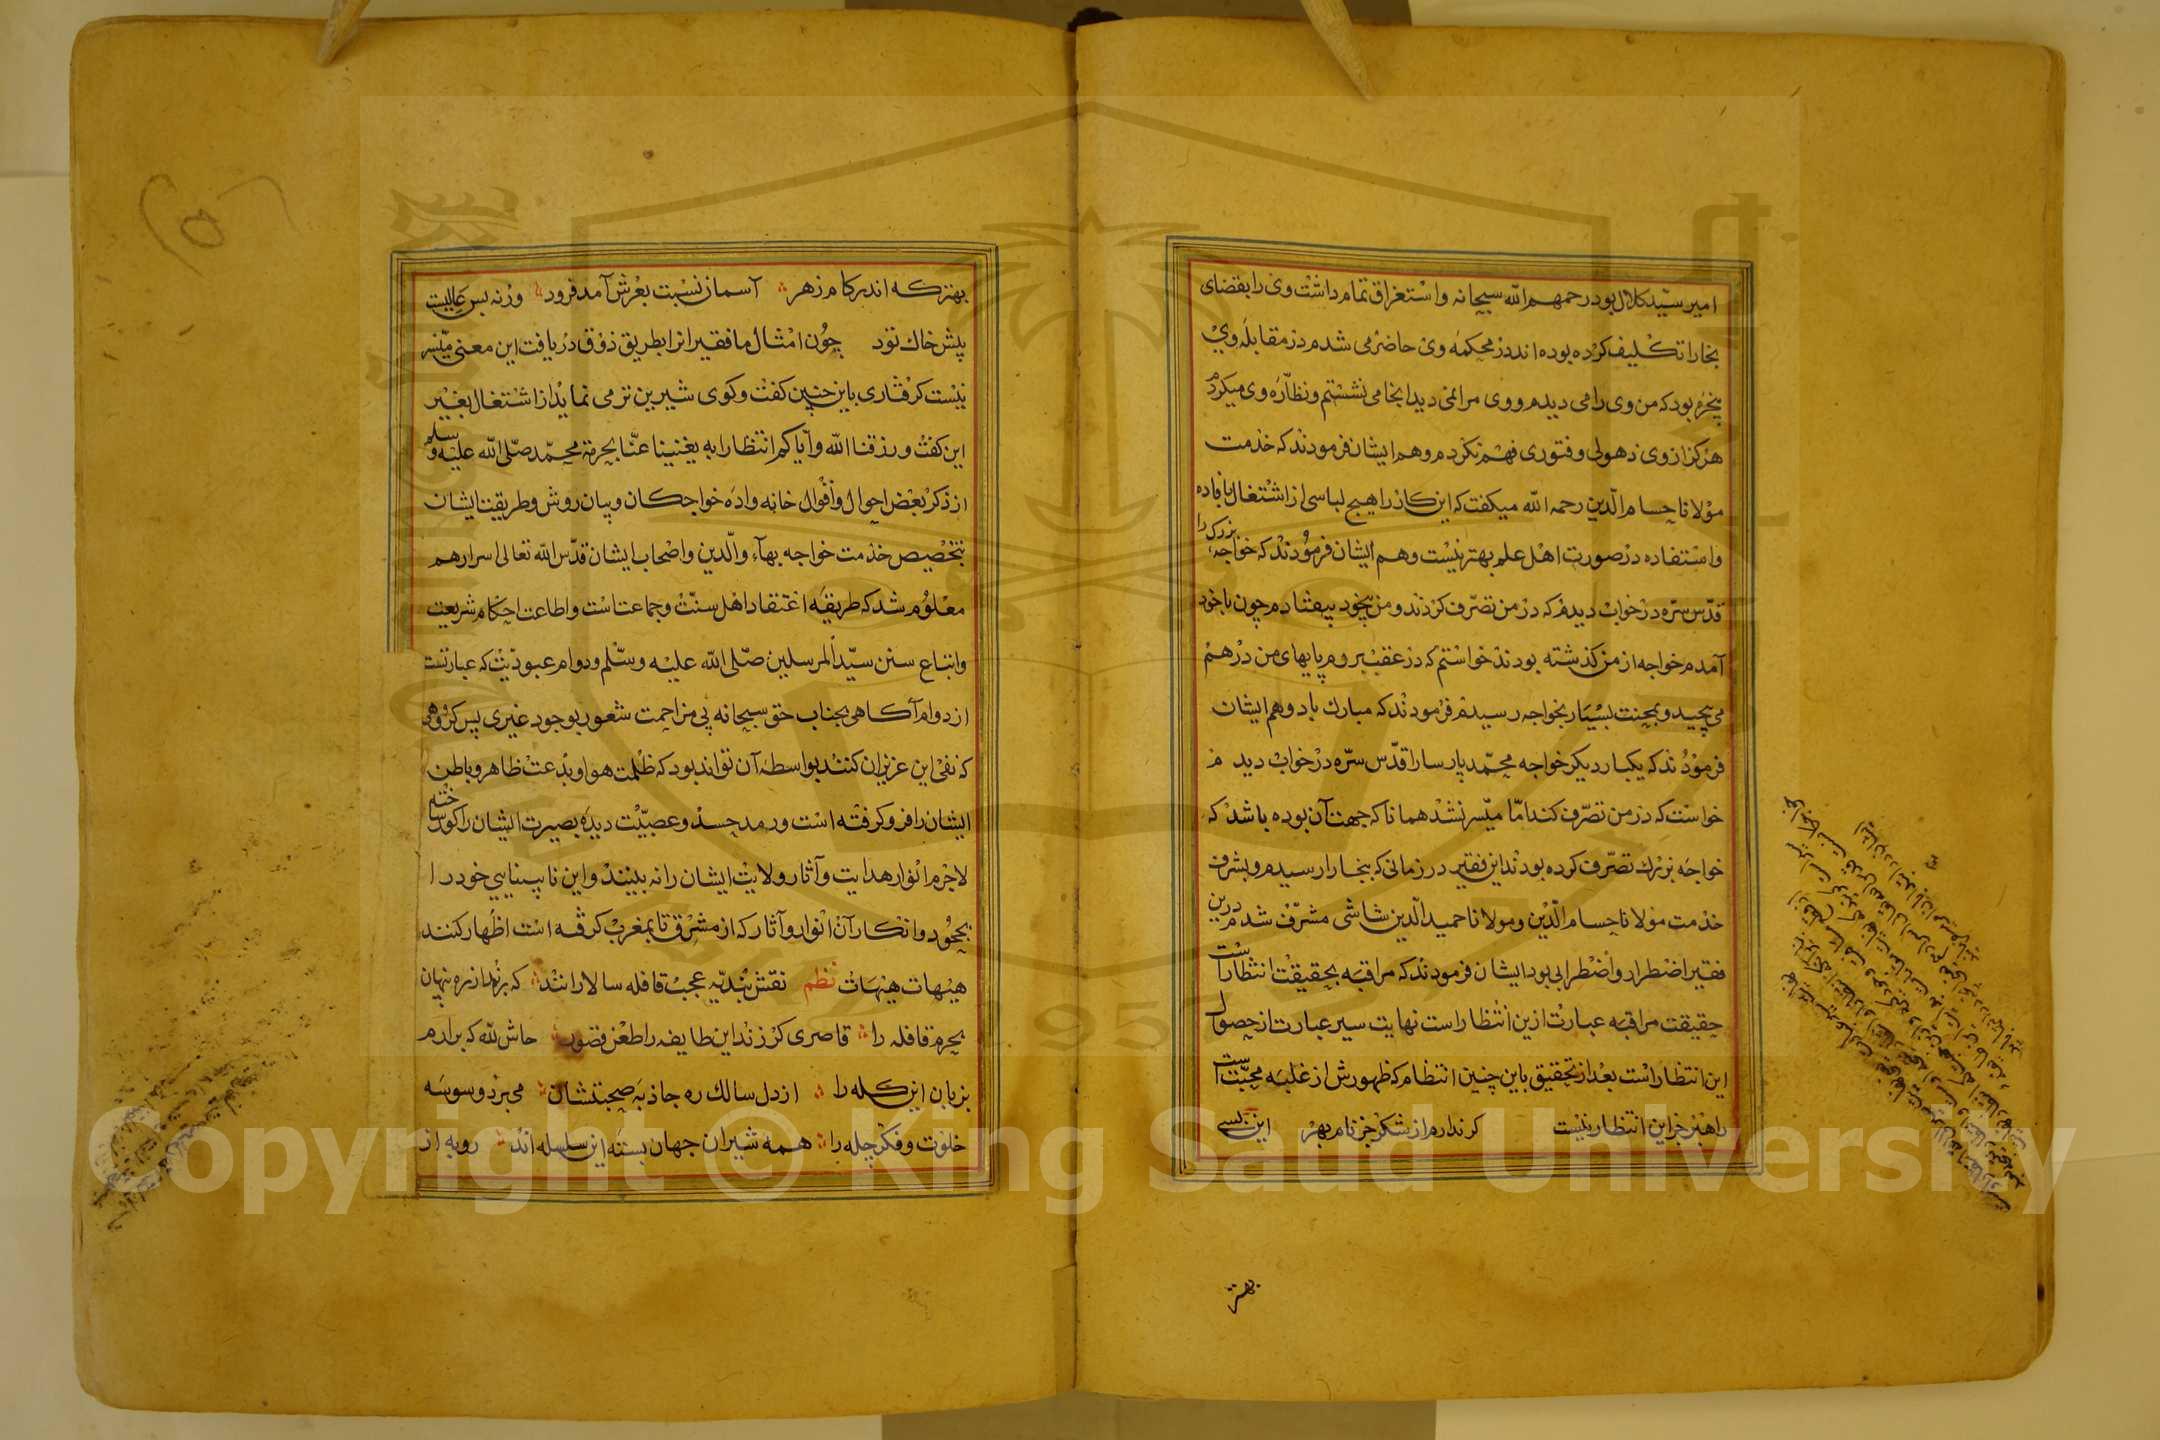 امیر سیّد کلال بود رحمهم الله سبحانه واستغراق تمام داشت وی را بقضای
بخارا تکلیف کرده بوده اند در محکمه وی حاضر می شدم در مقابله وی
پنجره بود که من وی را می دیدم و وی مرا نمی دید انجا می نشستم و نظّاره وی میکردم
هرکز از وی ذهولی و فتوری فهم نکردم و هم ایشان فرمودند که خدمت
مولانا حسام الدین رحمه الله میکفت که این کار را هیچ لباسی از اشتغال بافاده
واستفاده در صورت اهل علم بهتر نیست و هم ایشان فرمودند که خواجه بزرک را
قدّس سرّه در خواب دیدم که در من تصرّف کردند و من بیخود بیفتادم چون باخود
آمدم خواجه از من کذشته بودند خواستم که در عقب بروم پایهای من در هم
می پیچید و بمحنت بسیار بخواجه رسیدم فرمودند که مبارک باد و هم ایشان
فرمودند که یکبار دیکر خواجه محمّد پارسا را قدّس سرّه در خواب دیدم
خواست که در من تصرّف کند امّا میسّر نشد همانا که جهت آن بوده باشد که
خواجه بزرک تصرّف کرده بودند این فقیر در زمانی که ببخارا رسیدم و بشرف
خدمت مولانا حسام الدّین و مولانا حمید الدّین شاشی مشرّف شدم درین
فقیر اضطرار و اضطرابی بود ایشان فرمودند که مراقبه بحقیقت انتظار است
حقیقت مراقبه عبارت ازین انتظار است نهایت سیر عبارت از حصول
این انتظار است بعد از تحقیق باین چنین انتظام که ظهورش از غلبه محبّت است
راهبر جز این انتظار نیست کر ندارم از شکر جز نام بهر این بسی
بهتر
بهتر که اندر کام زهر آسمان نسبت بعرش آمد فرود ورنه بس عالیست
پیش خاک تود چون امثال ما فقیران را بطریق ذوق دریافت این معنی میسّر
نیست کرفتاری باین چنین کفت و کوی شیرین تر می نماید از اشتغال بغیر
این کفت ورزقنا الله وایاکم انتظارا به یغنینا عنّا بحرمة محمّد صلّی الله علیه وسلم
از ذکر بعض احوال و اقوال خانه واده خواجکان و بیان روش و طریقت ایشان
بتخصیص خدمت خواجه بهاء والدین واصحاب ایشان قدّس الله تعالی اسرارهم
معلوم شد که طریقه اعتقاد اهل سنّت و جماعت است و اطاعت احکام شریعت
واتباع سنن سیّد المرسلین صلّی الله علیه وسلّم و دوام عبودیّت که عبارتست
از دوام آکاهی بجناب حق سبحانه بی مزاحمت شعور بوجود غیری پس کروهی
که نفی این عزیزان کنند بواسطه آن تواند بود که ظلمت هوا و بدعت ظاهر و باطن
ایشان را فرو کرفته است و رمد حسد و عصبیّت دیده بصیرت ایشان را کور ساخته
لاجرم انوار هدایت و آثار ولایت ایشان را نه بینند و این نابینایی خود را
بجحود و انکار آن انوار و آثار که از مشرق تا بمغرب کرفته است اظهار کنند
هیهات هیهات نظم نقش بندیه عجب قافله سالارانند که برند از ره پنهان
بحرم قافله را قاصری کر زند این طایفه را طعن قصور حاش لله که برارم
بزبان این کله را از دل سالک ره جاذبه صحبتشان می برد وسوسه
خلوت و فکر چله را همه شیران جهان بسته این سلسله اند روبه از
Copyright © King Saud University